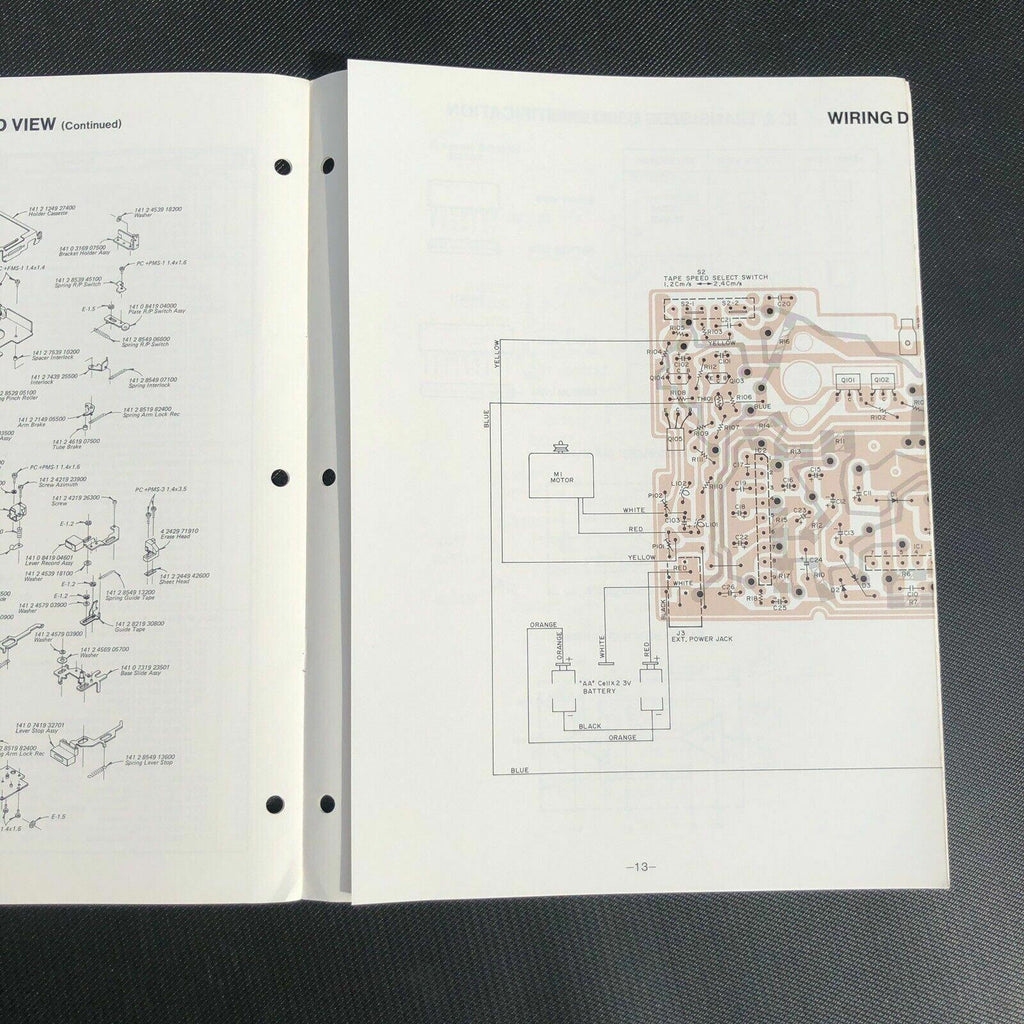 D VIEW (Continued)
141 2 1249 27400
Holder Cassette
141 2 4539 18200
Washer
141 0 3169 07500
Bracket Holder Assy
PC +PMS-1 1.4x1.4
PC +PMS-1 1.4x1.6
141 2 8539 45100
Spring R/P Switch
E-1.5
141 0 8419 04000
Plate R/P Switch Assy
141 2 8549 06800
Spring R/P Switch
141 2 7639 10200
Spacer Interlock
141 2 7439 25500
Interlock
141 2 8549 07100
Spring Interlock
2 8529 05100
ng Pinch Roller
141 2 7149 05500
Arm Brake
141 2 8519 82400
Spring Arm Lock Rec
141 2 4619 07500
Tube Brake
PC +PMS-1 1.4x1.6
141 2 4219 23900
Screw Azimuth
141 2 4219 26300
Screw
PC +PMS-3 1.4x3.5
E-1.2
4 2429 71910
Erase Head
141 0 8419 04601
Lever Record Assy
141 2 4539 18100
Washer
141 2 2449 42600
Sheet Head
E-1.2
141 2 8549 13200
Spring Guide Tape
E-1.2
141 2 4579 03900
Washer
141 2 8219 30800
Guide Tape
141 2 4579 03900
Washer
141 2 4569 05700
Washer
141 0 7319 23501
Base Slide Assy
141 0 7419 32701
Lever Stop Assy
2 8519 82400
ng Arm Lock Rec
141 2 8549 13600
Spring Lever Stop
1.4x1.6
E-1.5
WIRING D
S2
TAPE SPEED SELECT SWITCH
1.2Cm/s 2.4Cm/s
S2-1 S2-2
C20
R105
R103
C21
YELLOW
R16
R104
C102
C101
R112
Q104
Q103
Q101
Q102
R108
TH101
R106
BLUE
R102
R107
R14
Q105
R109
R11
IC2
R13
C17
C15
L102
R110
C19
C16
C11
D1
P102
C18
C12
C23
C103
L101
R15
R12
C13
P101
C22
IC1
C24
R17
R10
R6
D2
D3
C26
R18
C25
C10
R7
YELLOW
BLUE
M1
MOTOR
WHITE
RED
YELLOW
RED
WHITE
BLACK
J3
EXT. POWER JACK
ORANGE
ORANGE
WHITE
RED
+
+
"AA" Cell X2 3V
BATTERY
BLACK
ORANGE
BLUE
—13—